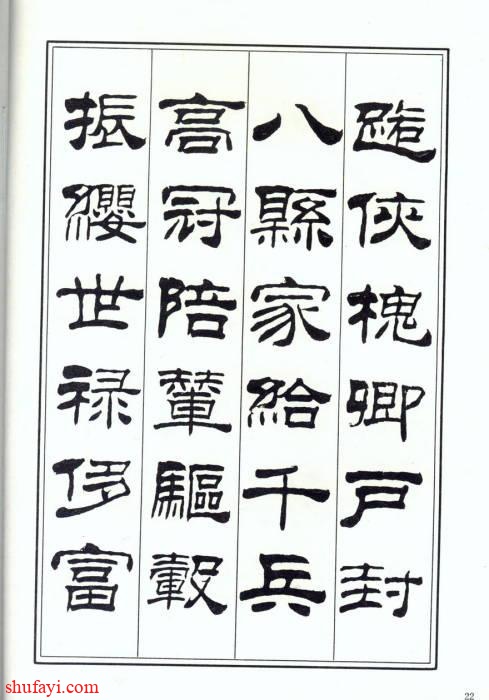 路俠槐卿戶封
八縣家給千兵
高冠陪輦驅轂
振纓世祿侈富
shufayi.com
22